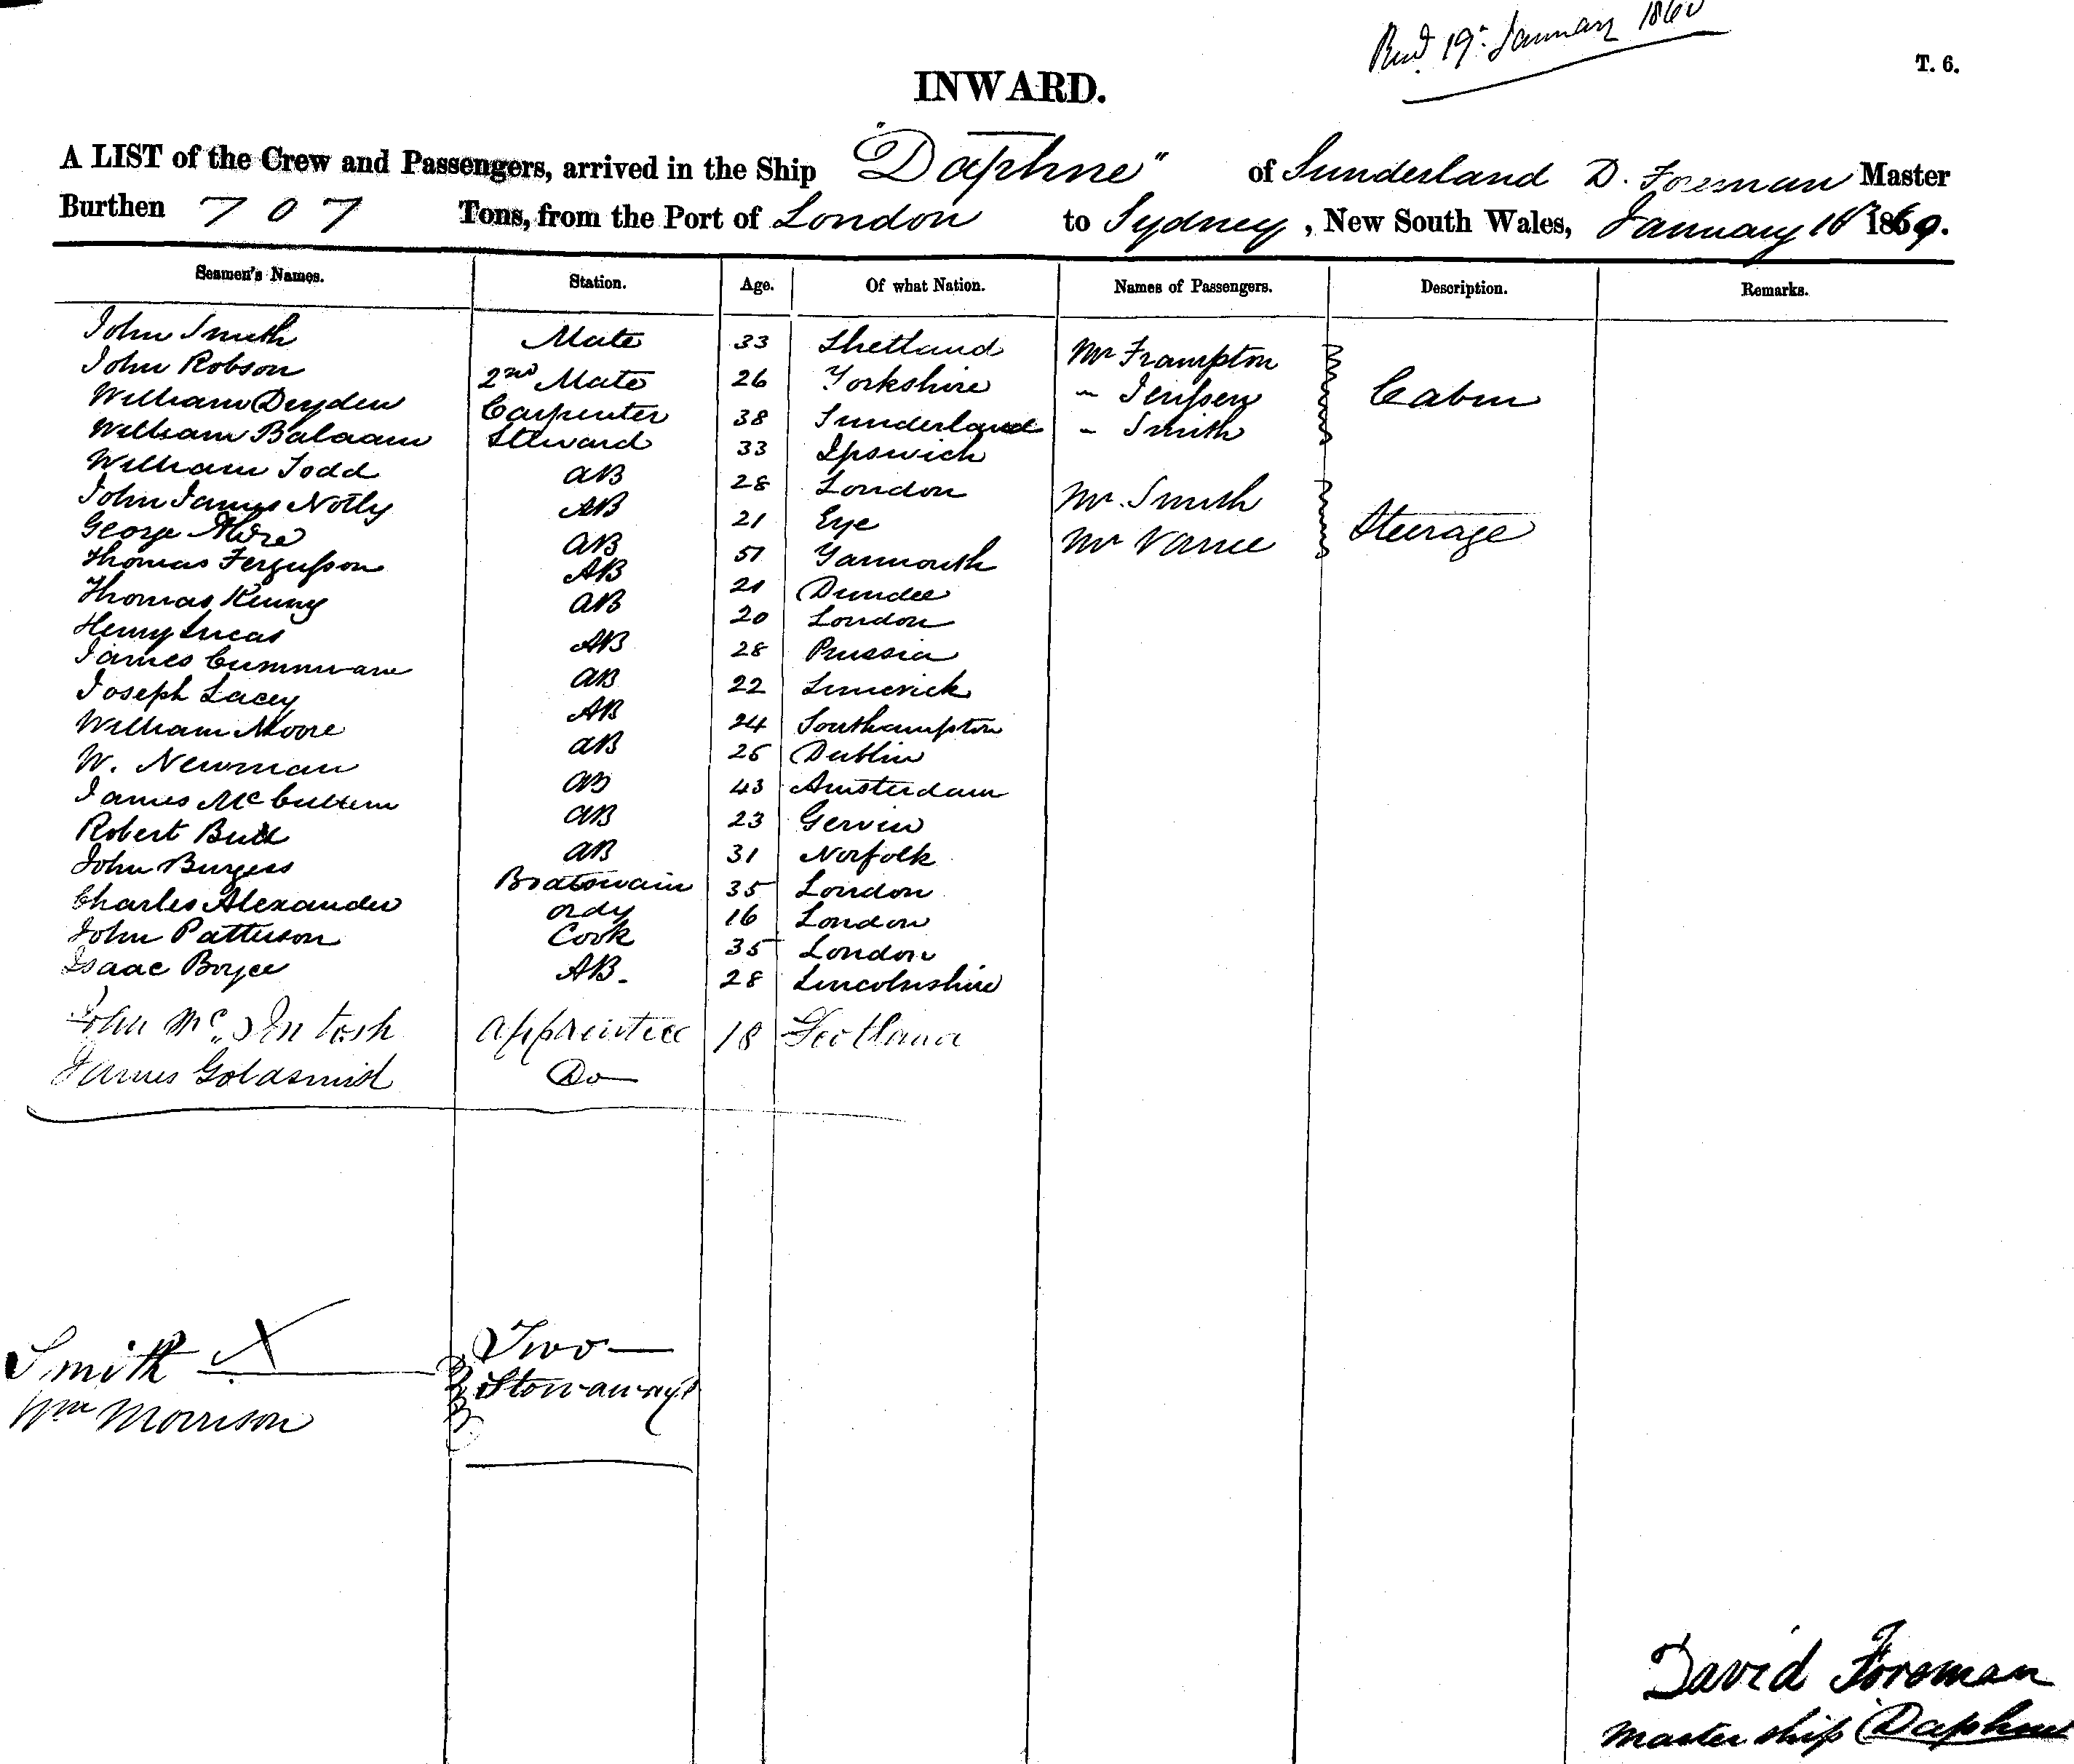 Recd. 19th January 1860
T. 6.
INWARD.
A LIST of the Crew and Passengers, arrived in the Ship "Daphne" of Sunderland D. Foreman Master
Burthen 707 Tons, from the Port of London to Sydney, New South Wales, January 1860.
Seamen's Names. Station. Age. Of what Nation. Names of Passengers. Description. Remarks.
John Smith Mate 33 Shetland Mr Frampton
John Robson 2nd Mate 26 Yorkshire " Jenssen Cabin
William Dryden Carpenter 38 Sunderland " Smith
William Balaam Steward 33 Ipswich
William Todd AB 28 London Mr. Smith
John James Notly AB 21 Eye Mr Vance Steerage
George AB 51 Yarmouth
Thomas Fergusson AB 21 Dundee
Thomas Kenny AB 20 London
Henry Lucas AB 28 Prussia
James AB 22 Limerick
Joseph Lacey AB 24 Southampton
William Moore AB 25 Dublin
W. Newman AB 43 Amsterdam
James McCullum AB 23 Gervin
Robert AB 31 Norfolk
John Burgess Boatswain 35 London
Charles Alexander ordy 16 London
John Patterson Cook 35 London
Isaac Boyce AB. 28 Lincolnshire
John Mc Intosh apprentice 18 Scotland
James Goldsmid Do
Smith X Two
Wm Morrison Stowaways
David Foreman
Master ship Daphne